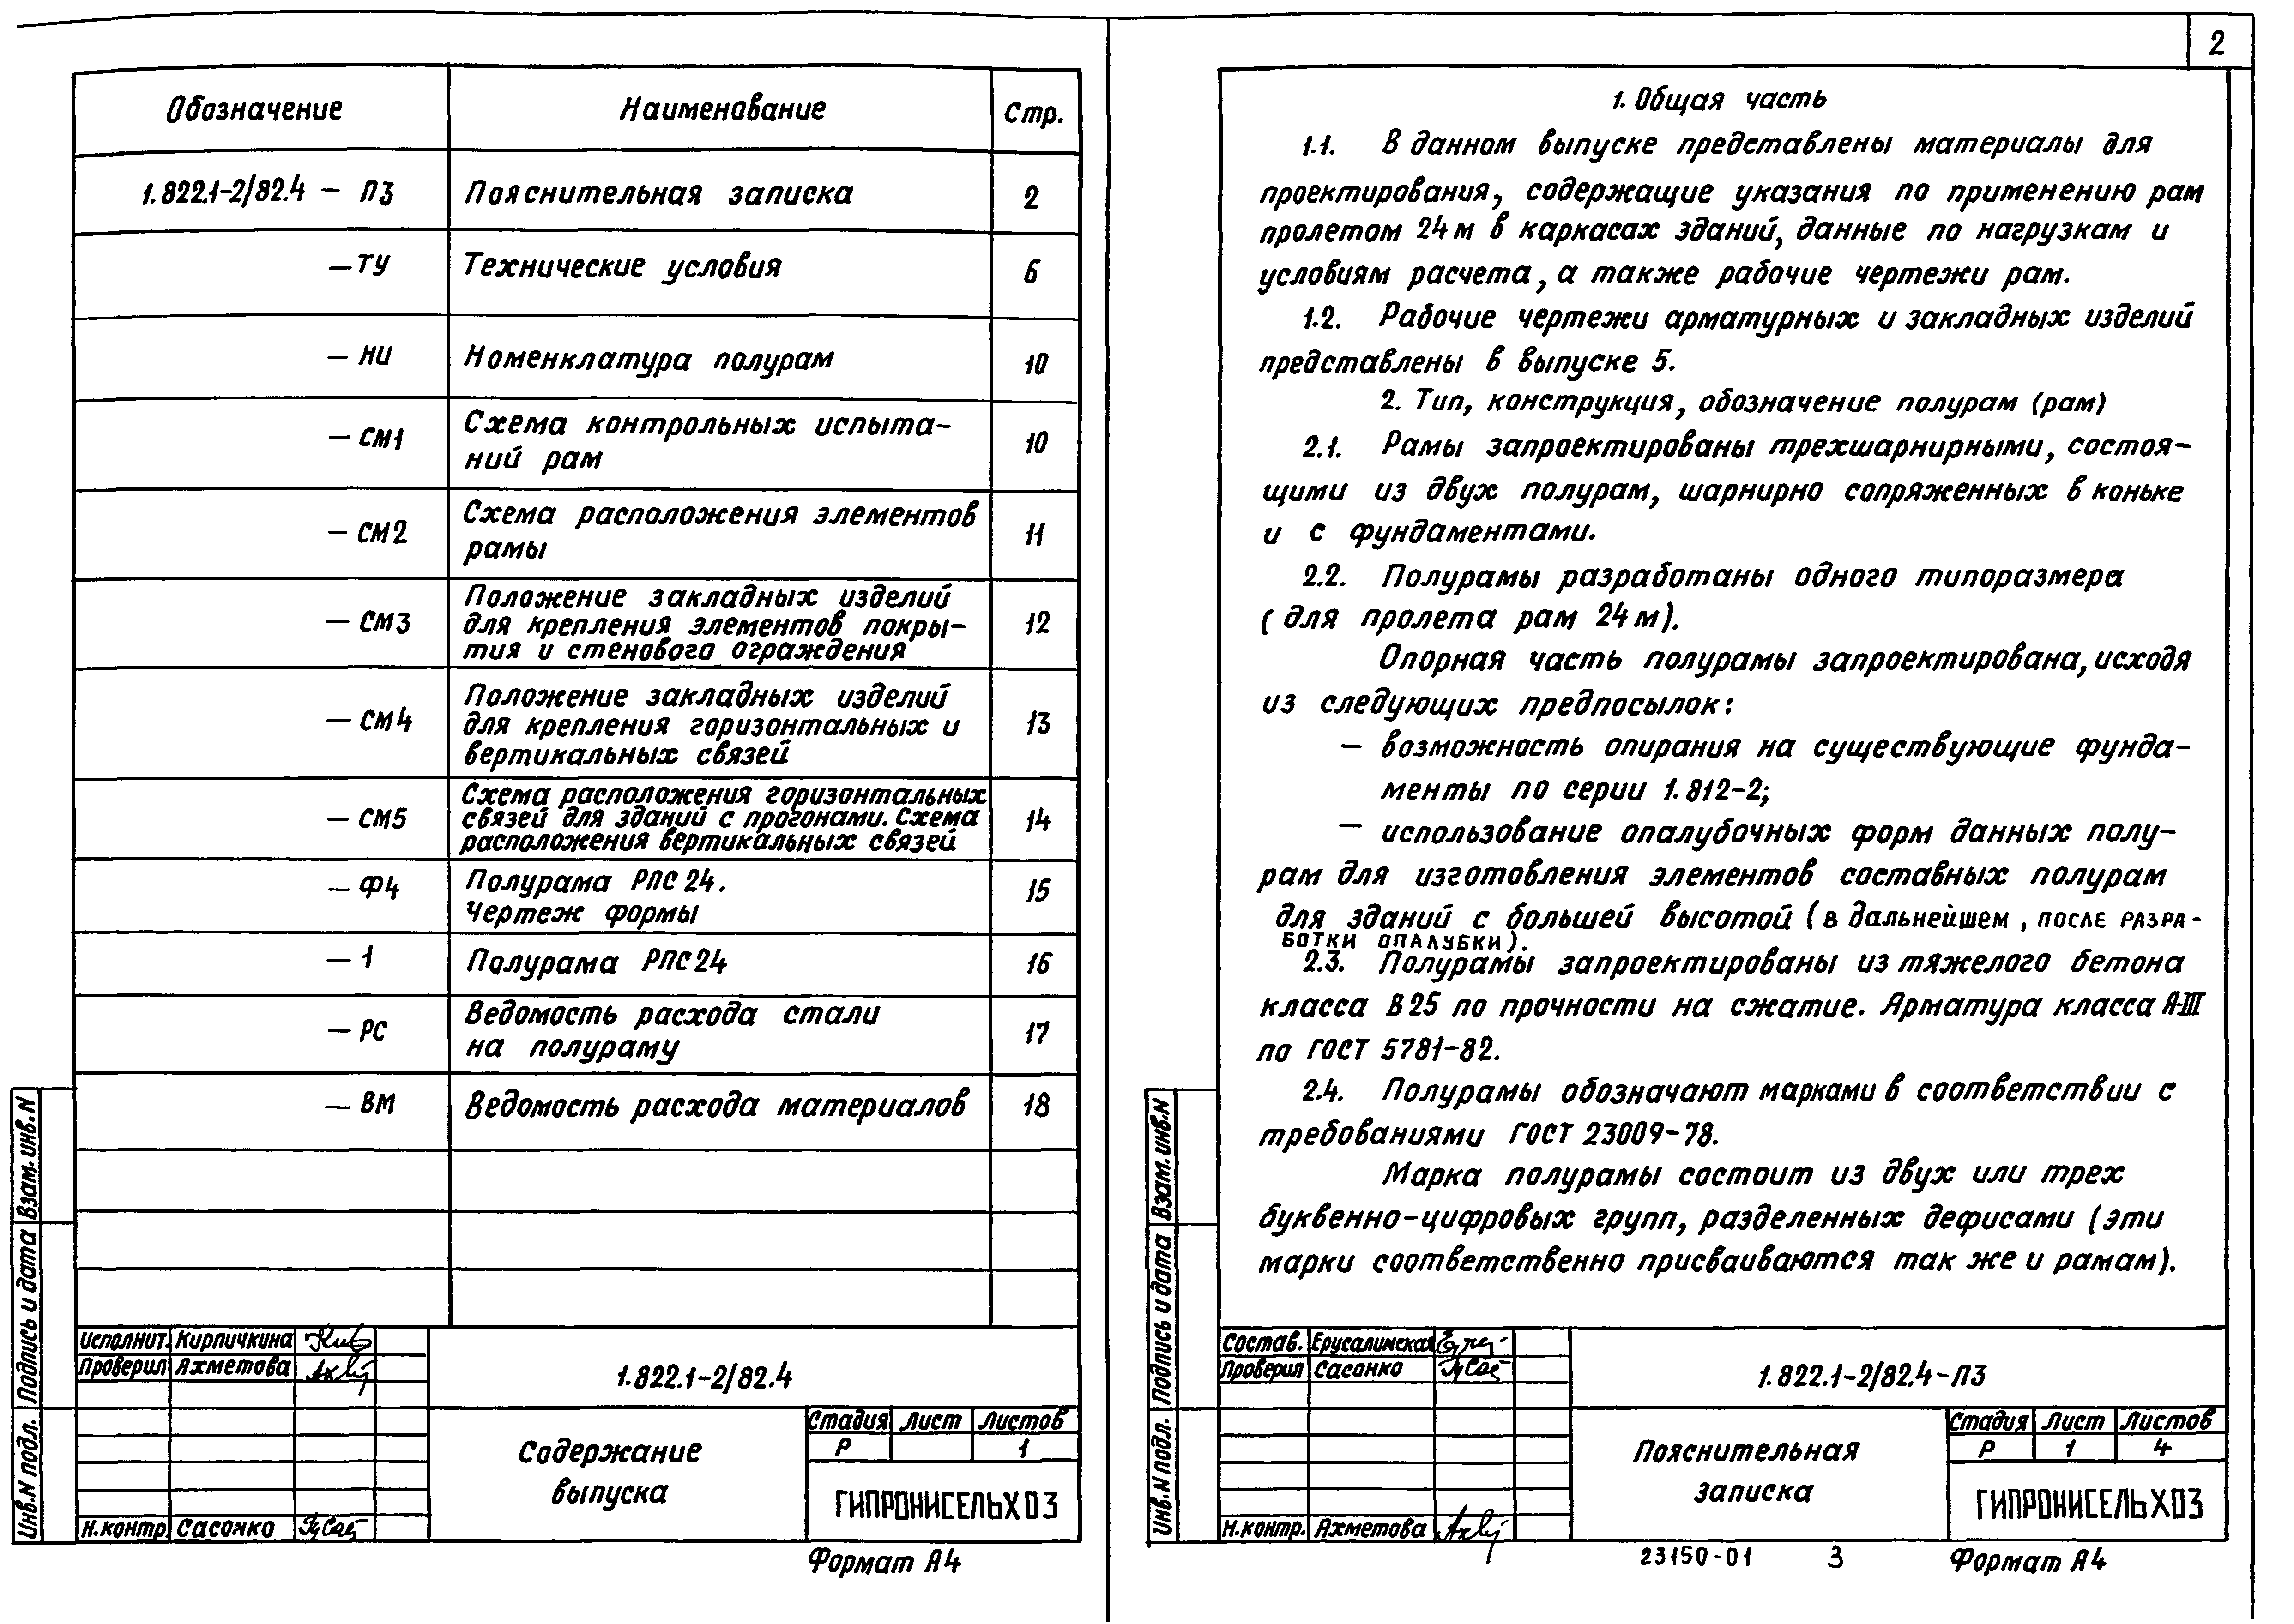 Обозначение Наименование Стр.
1.822.1-2/82.4 - ПЗ Пояснительная записка 2
- ТУ Технические условия 6
- НИ Номенклатура полурам 10
- СМ1 Схема контрольных испыта-
ний рам 10
- СМ2 Схема расположения элементов
рамы 11
- СМ3 Положение закладных изделий
для крепления элементов покры-
тия и стенового ограждения 12
- СМ4 Положение закладных изделий
для крепления горизонтальных и
вертикальных связей 13
- СМ5 Схема расположения горизонтальных
связей для зданий с прогонами. Схема
расположения вертикальных связей 14
- Ф4 Полурама РПС 24.
Чертеж формы 15
- 1 Полурама РПС 24 16
- РС Ведомость расхода стали
на полураму 17
- ВМ Ведомость расхода материалов 18
Взам. инв. N
Подпись и дата
Инв. N подл.
Исполнит. Кирпичкина
Проверил Яхметова
Н.контр. Сасонко
1.822.1-2/82.4
Содержание
выпуска
Стадия Лист Листов
Р 1
ГИПРОНИСЕЛЬХОЗ
Формат А4
2
1. Общая часть
1.1. В данном выпуске представлены материалы для
проектирования, содержащие указания по применению рам
пролетом 24 м в каркасах зданий, данные по нагрузкам и
условиям расчета, а также рабочие чертежи рам.
1.2. Рабочие чертежи арматурных и закладных изделий
представлены в выпуске 5.
2. Тип, конструкция, обозначение полурам (рам)
2.1. Рамы запроектированы трехшарнирными, состоя-
щими из двух полурам, шарнирно сопряженных в коньке
и с фундаментами.
2.2. Полурамы разработаны одного типоразмера
(для пролета рам 24 м).
Опорная часть полурамы запроектирована, исходя
из следующих предпосылок:
- возможность опирания на существующие фунда-
менты по серии 1.812-2;
- использование опалубочных форм данных полу-
рам для изготовления элементов составных полурам
для зданий с большей высотой (в дальнейшем, после разра-
ботки опалубки).
2.3. Полурамы запроектированы из тяжелого бетона
класса В 25 по прочности на сжатие. Арматура класса А-III
по ГОСТ 5781-82.
2.4. Полурамы обозначают марками в соответствии с
требованиями ГОСТ 23009-78.
Марка полурамы состоит из двух или трех
буквенно-цифровых групп, разделенных дефисами (эти
марки соответственно присваиваются так же и рамам).
Взам. инв. N
Подпись и дата
Инв. N подл.
Состав. Ерусалимская
Проверил Сасонко
Н.контр. Яхметова
1.822.1-2/82.4-ПЗ
Пояснительная
записка
Стадия Лист Листов
Р 1 4
ГИПРОНИСЕЛЬХОЗ
23150-01 3 Формат А4